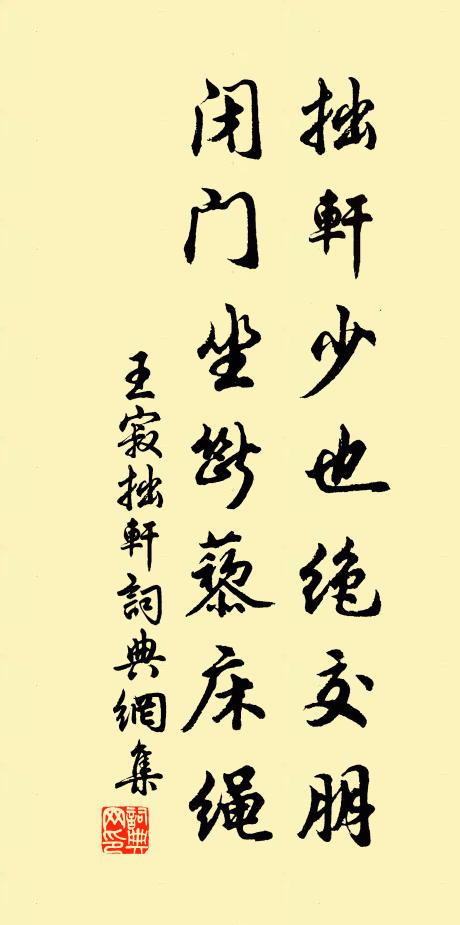 拙軒少也绝交朋
闭门坐斷藜床绳
王寂拙軒詞典網集
詞典网印